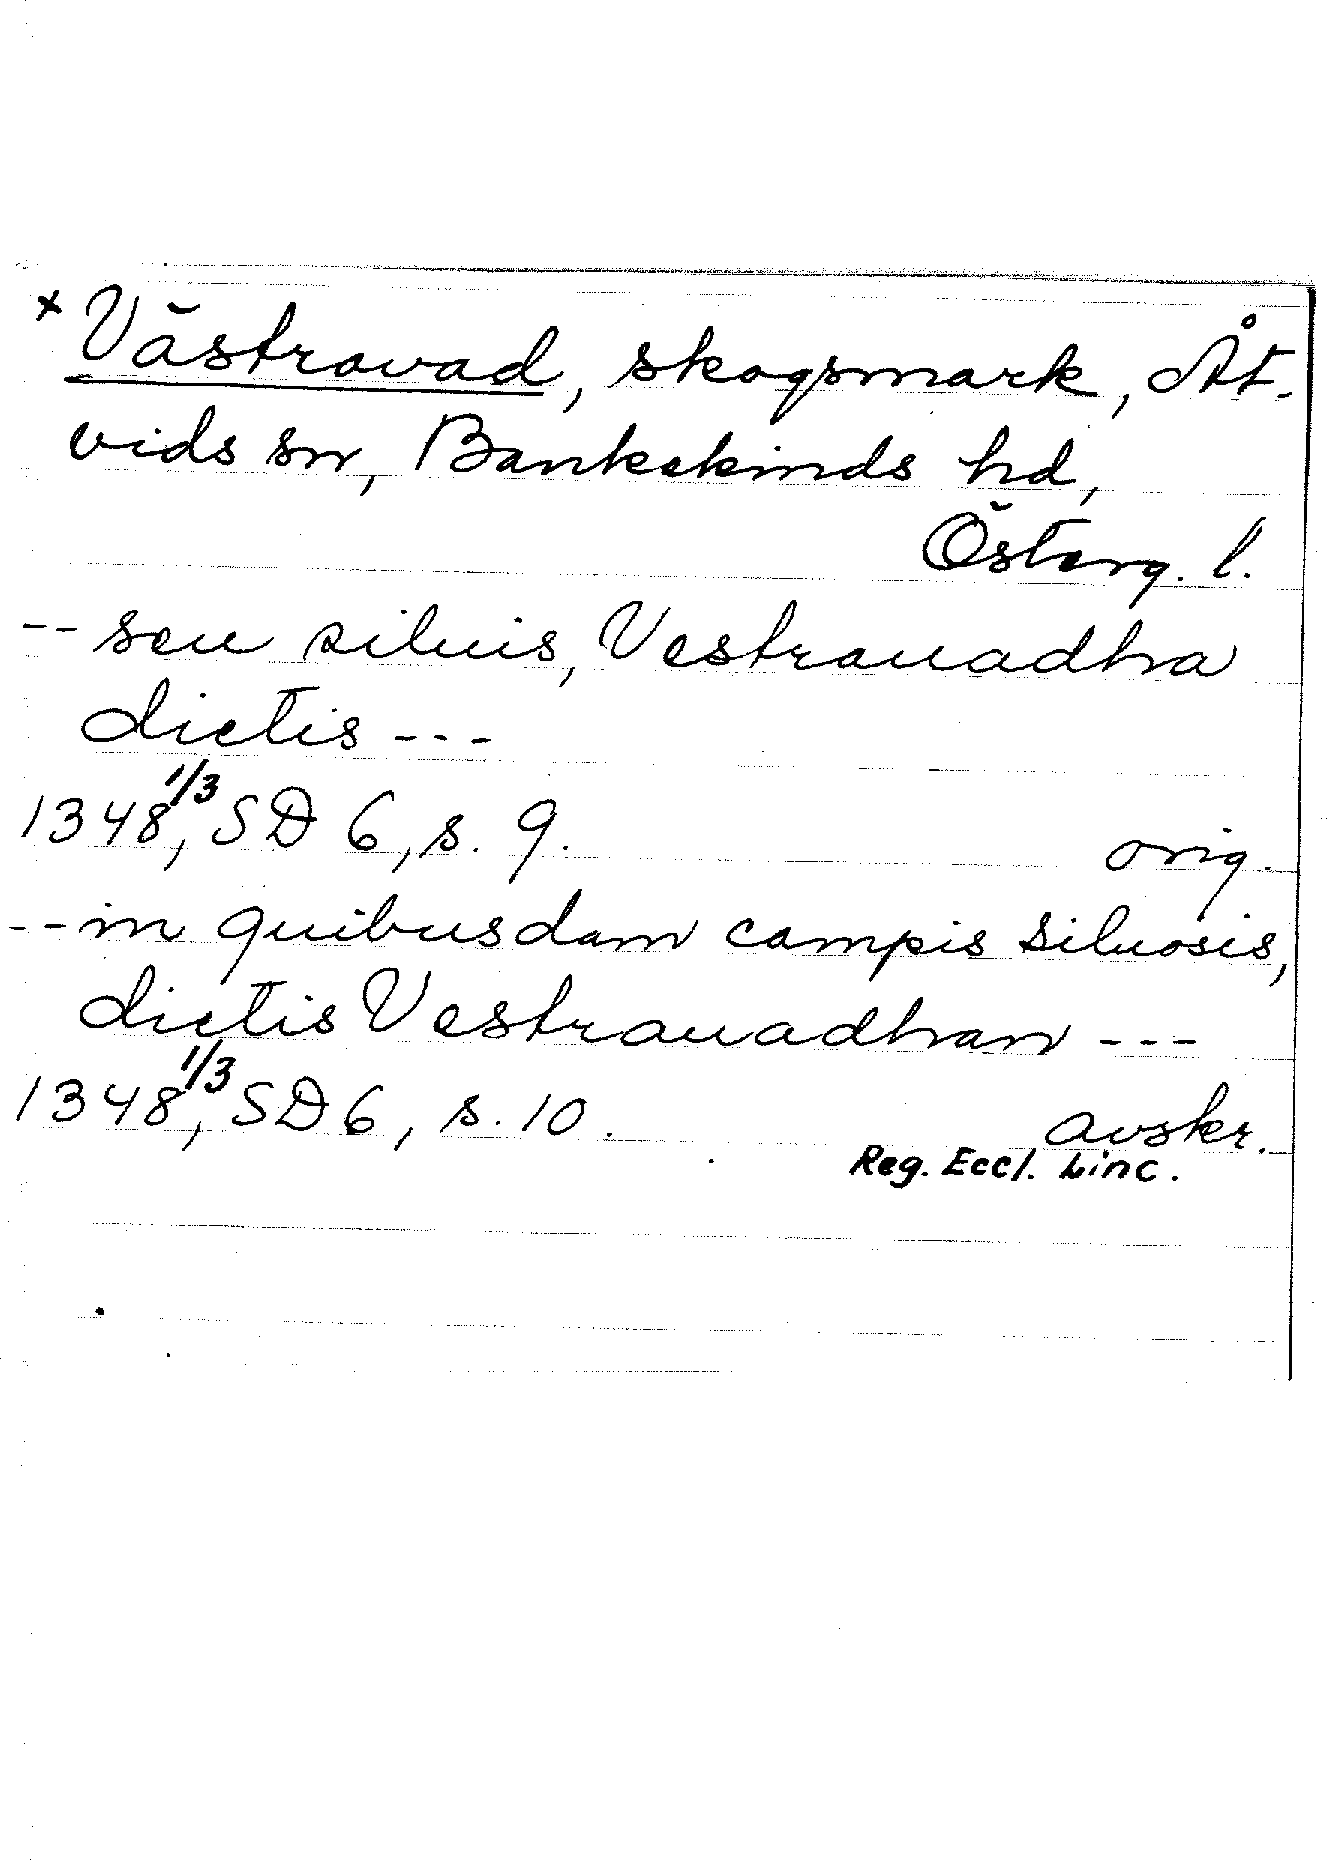 × Västravad, skogsmark, Åt-
vids sn, Bankekinds hd,
Österg. l.
-- seu siluis, Vestrauadha
dictis ---
1348 1/3, SD 6, s. 9. orig.
-- in quibusdam campis siluosis,
dictis Vestrauadhan ---
1348 1/3, SD 6, s. 10. avskr.
Reg. Eccl. Linc.